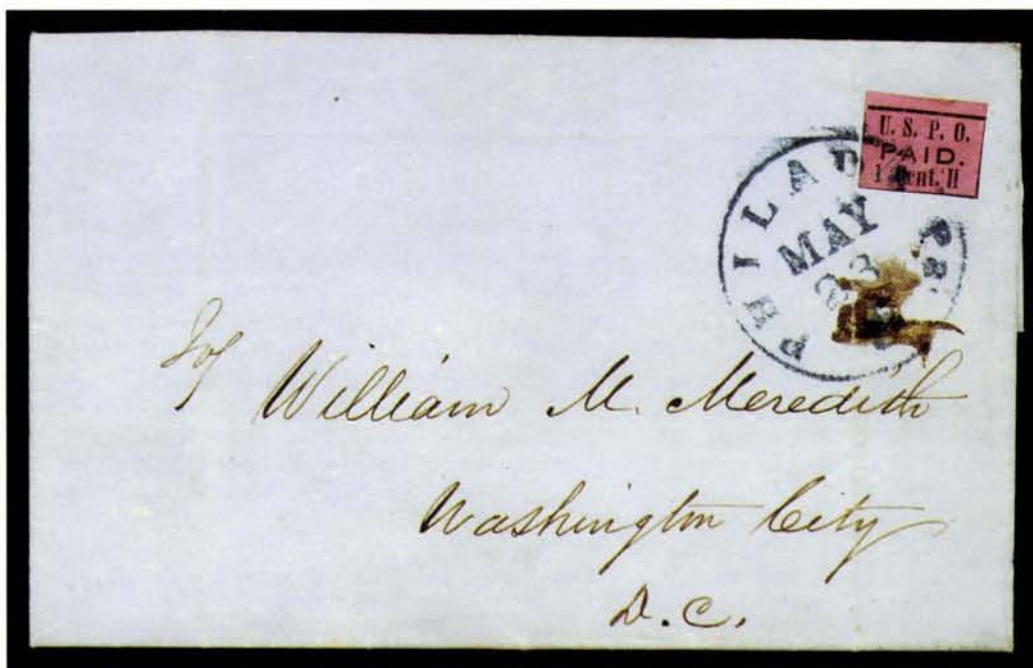 U. S. P. O.
PAID.
1 Cent. H
PHILADA Pa.
MAY
23
William M. Meredith
Washington City
D. C.